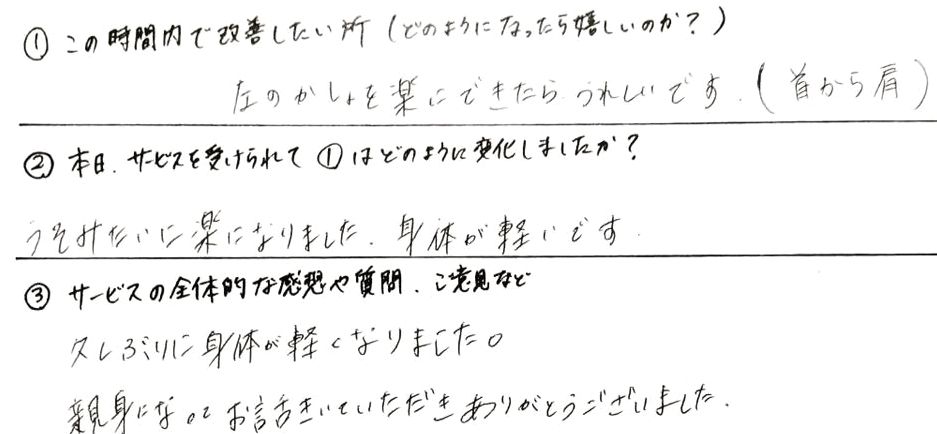 ① この時間内で改善したい所（どのようになったら嬉しいのか？）
左のかしょを楽にできたらうれしいです.（首から肩）
② 本日.サービスを受けられて①はどのように変化しましたか？
うそみたいに楽になりました.身体が軽いです.
③ サービスの全体的な感想や質問、ご意見など
久しぶりに身体が軽くなりました。
親身になってお話きいていただきありがとうございました.